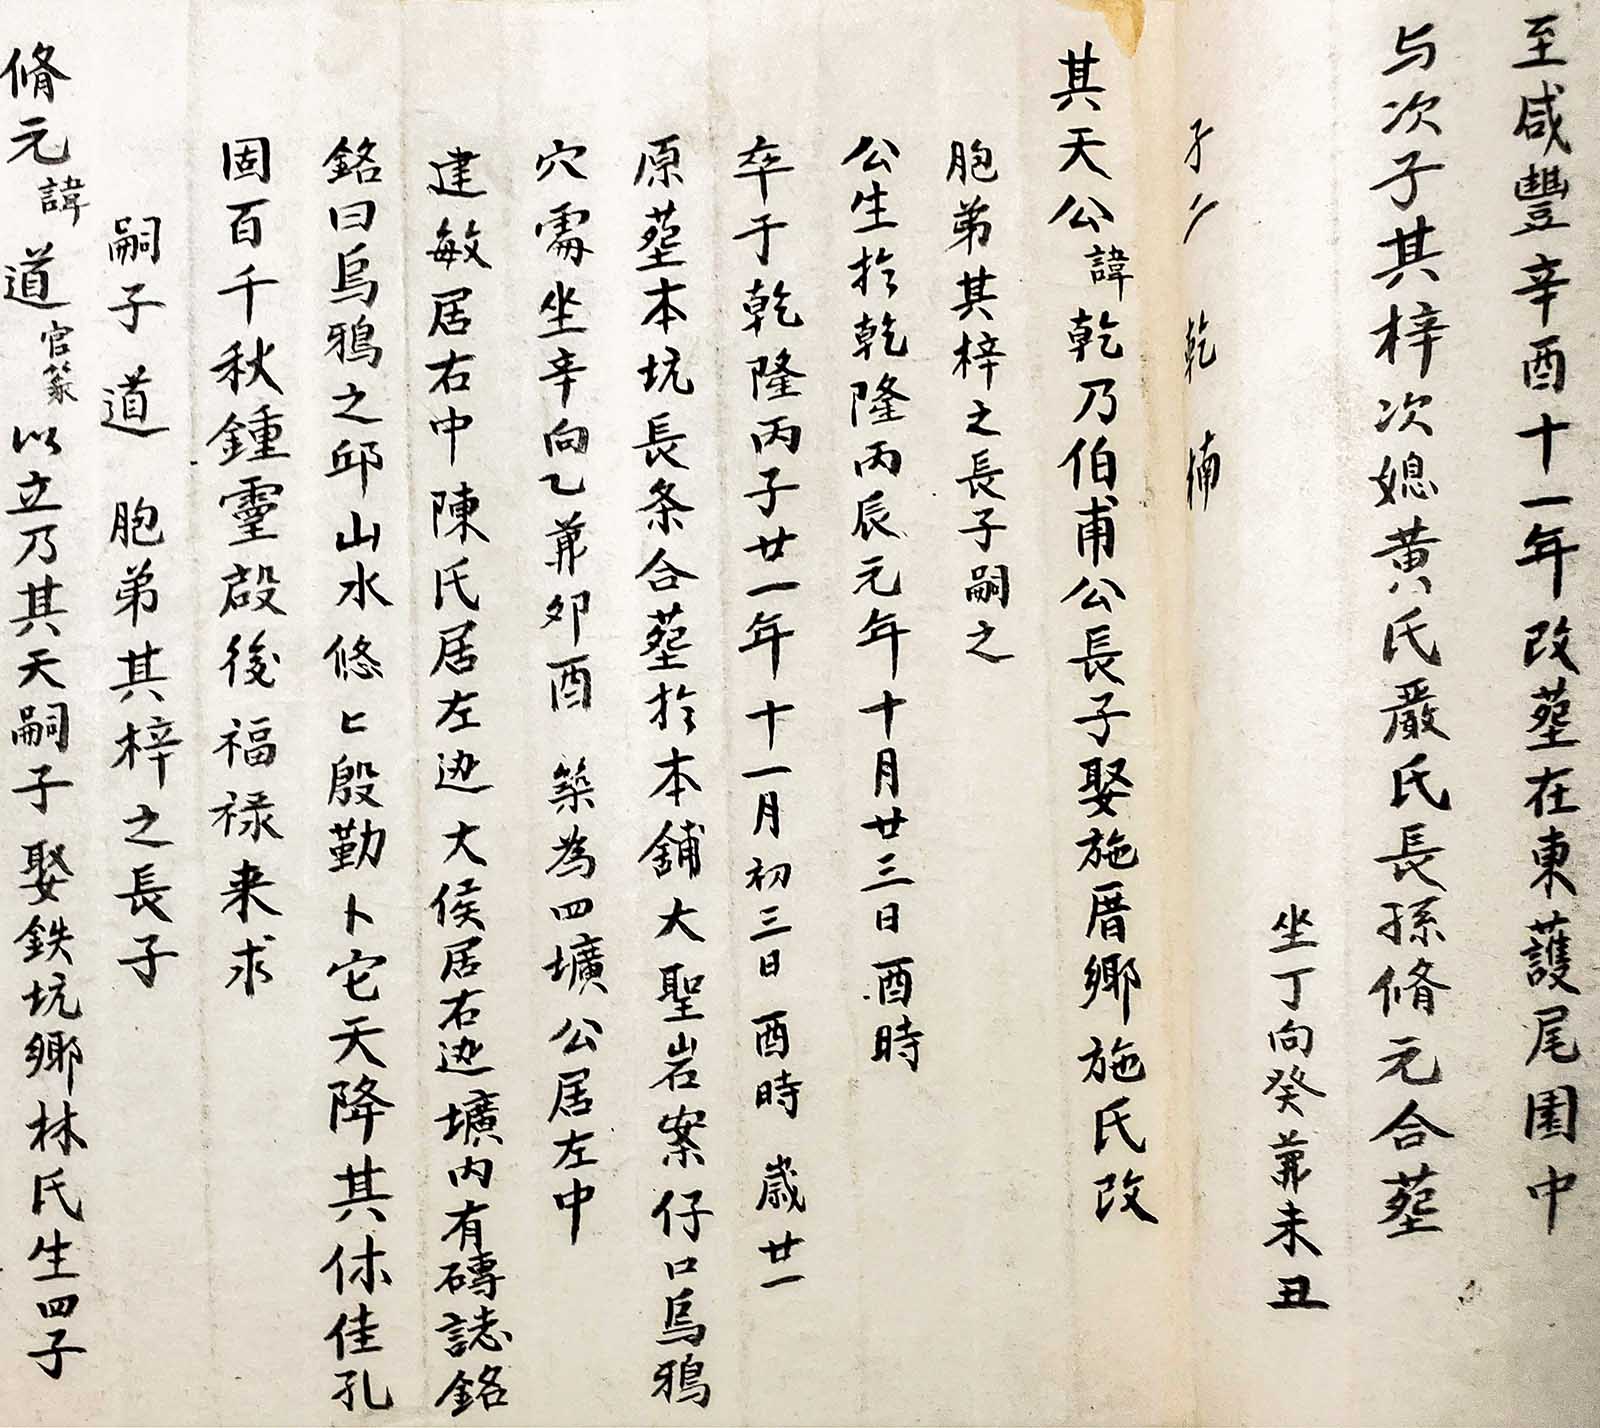 至咸豐辛酉十一年改塟在東護尾園中
与次子其梓次媳黃氏嚴氏長孫脩元合塟
坐丁向癸兼未丑
乾
其天公諱乾乃伯甫公長子娶施厝鄉施氏改
胞弟其梓之長子嗣之
公生扵乾隆丙辰元年十月廿三日酉時
卒于乾隆丙子廿一年十一月初三日酉時 歲廿一
原塟本坑長条合塟扵本舖大聖岩案仔口烏鴉
穴需坐辛向乙兼夘酉 築為四壙公居左中
建敏居右中陳氏居左边大侯居右边壙内有磚誌銘
銘曰烏鴉之邱山水悠匕殷勤卜它天降其休佳孔
固百千秋鍾靈啟後福禄来求
嗣子道 胞弟其梓之長子
脩元諱道官篆以立乃其天嗣子娶鉄坑鄉林氏生四子